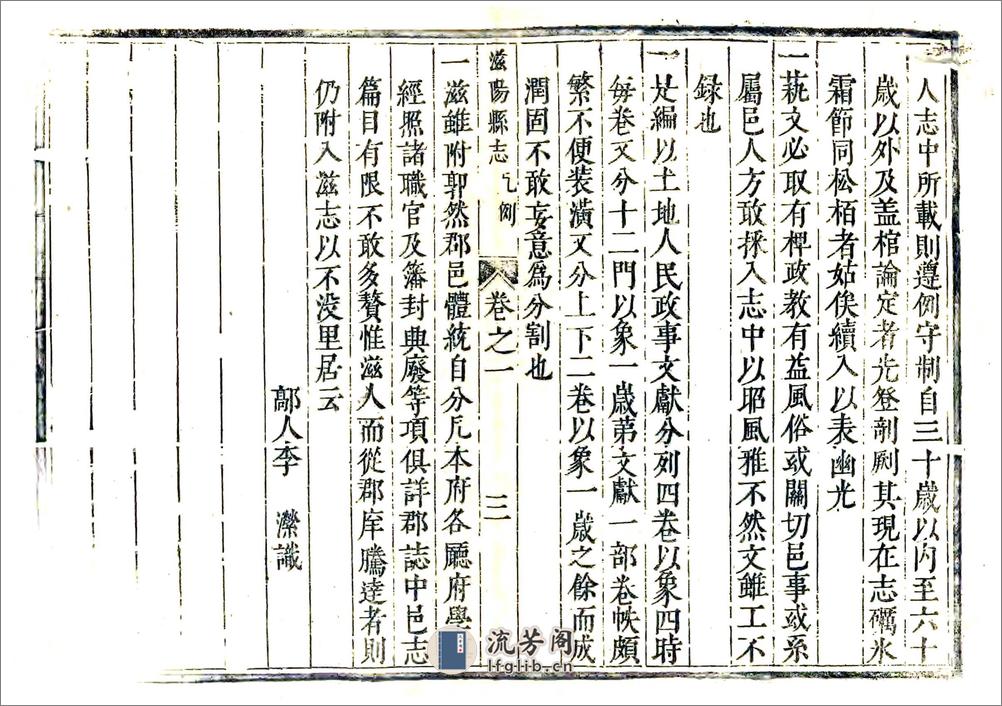 人志中所載則遵例守制自三十歲以內至六十
歲以外及盖棺論定者先登剞劂其現在志礪氷
霜節同松栢者姑俟續入以表幽光
一蓺文必取有裨政教有益風俗或關切邑事或系
屬邑人方敢採入志中以昭風雅不然文雖工不
録也
一是編以土地人民政事文獻分列四卷以象四時
每卷又分十二門以象一歲第文獻一部卷帙頗
繁不便装潢又分上下二卷以象一歲之餘而成
潤固不敢妄意爲分割也
滋陽縣志 凡例 卷之一 三
一滋雖附郭然郡邑體統自分凡本府各廳府學
經照諸職官及籓封典廢等項俱詳郡誌中邑志
篇目有限不敢多贅惟滋人而從郡庠騰達者則
仍附入滋志以不没里居云
鄗人李 瀠識
流芳阁
lfglib.cn